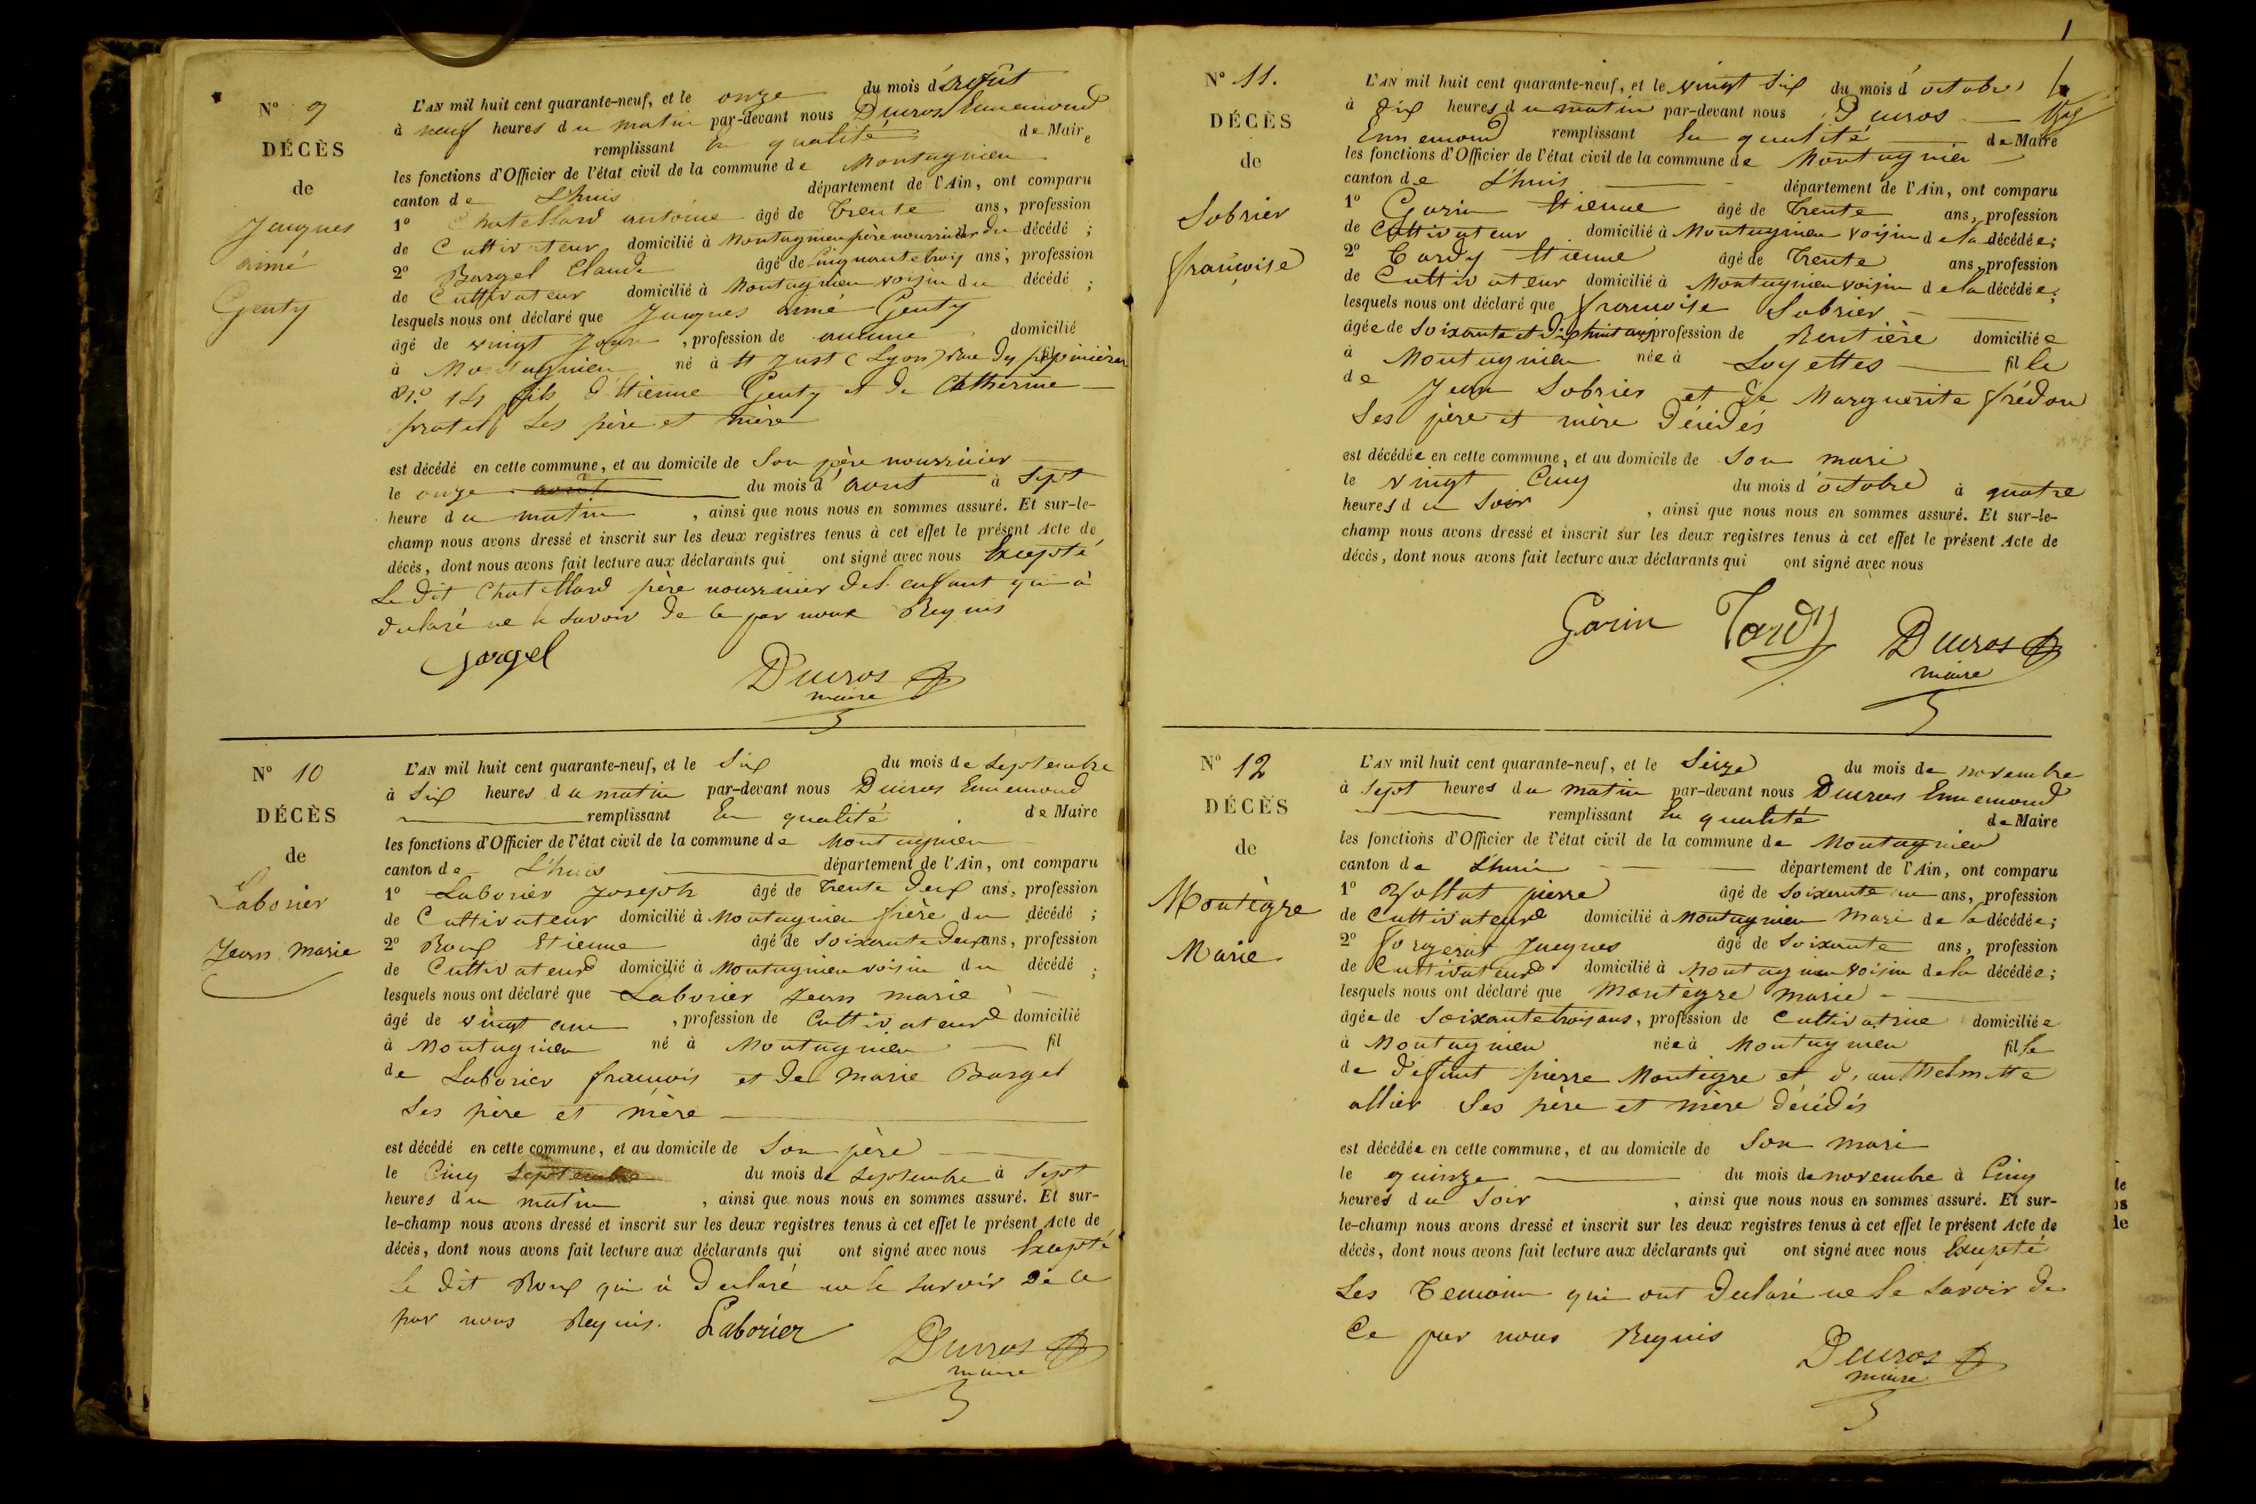 Nº 9
DÉCÈS
de
Jacques
aimé
Genty
L'AN mil huit cent quarante-neuf, et le onze du mois d'août
à neuf heures du matin par-devant nous Ducros Ennemond
remplissant en qualité de Maire
les fonctions d'Officier de l'état civil de la commune de Montagnieu
canton de L'huis département de l'Ain, ont comparu
1º Chatellard antoine âgé de trente ans, profession
de Cultivateur domicilié à Montagnieu père nourricier du décédé ;
2º Bargel Claude âgé de cinquante trois ans, profession
de Cultivateur domicilié à Montagnieu voisin du décédé ;
lesquels nous ont déclaré que Jacques aimé Genty
âgé de vingt jours, profession de aucune domicilié
à Montagnieu né à St Just (Lyon) rue des pépinières
Nº 14 fils d'Etienne Genty et de Catherine
ses père et mère
est décédé en cette commune, et au domicile de Son père nourricier
le onze août du mois d'août à Sept
heure du matin, ainsi que nous nous en sommes assuré. Et sur-le-
champ nous avons dressé et inscrit sur les deux registres tenus à cet effet le présent Acte de
décès, dont nous avons fait lecture aux déclarants qui ont signé avec nous Excepté
Le dit Chatellard père nourricier de l'enfant qui à
déclaré ne le savoir de ce par nous Requis
Gargel
Ducros
maire
Nº 10
DÉCÈS
de
Laborier
Jean Marie
L'AN mil huit cent quarante-neuf, et le Six du mois de Septembre
à Six heures du matin par-devant nous Ducros Ennemond
remplissant en qualité de Maire
les fonctions d'Officier de l'état civil de la commune de Montagnieu
canton de L'huis département de l'Ain, ont comparu
1º Laborier Joseph âgé de trente deux ans, profession
de Cultivateur domicilié à Montagnieu frère du décédé ;
2º Roux Etienne âgé de Soixante deux ans, profession
de Cultivateur domicilié à Montagnieu voisin du décédé ;
lesquels nous ont déclaré que Laborier Jean marie
âgé de vingt ans, profession de Cultivateur domicilié
à Montagnieu né à Montagnieu fil
de Laborier françois et de marie Bargel
Ses père et mère
est décédé en cette commune, et au domicile de Son père
le Cinq Septembre du mois de Septembre à Sept
heures du matin, ainsi que nous nous en sommes assuré. Et sur-
le-champ nous avons dressé et inscrit sur les deux registres tenus à cet effet le présent Acte de
décès, dont nous avons fait lecture aux déclarants qui ont signé avec nous Excepté
Le dit Roux qui à declaré ne le savoir de ce
par nous Requis. Laborier
Ducros
maire
Nº 11.
DÉCÈS
de
Sobrier
françoise
L'AN mil huit cent quarante-neuf, et le vingt Six du mois d'octobre
à dix heures du matin par-devant nous Ducros
Ennemond remplissant En qualité de Maire
les fonctions d'Officier de l'état civil de la commune de Montagnieu
canton de L'huis département de l'Ain, ont comparu
1º Garin Etienne âgé de trente ans, profession
de Cultivateur domicilié à Montagnieu voisin de la décédée ;
2º Tardy Etienne âgé de trente ans, profession
de Cultivateur domicilié à Montagnieu voisin de la décédée ;
lesquels nous ont déclaré que françoise Sobrier
âgée de Soixante et dix huit ans, profession de Rentière domiciliée
à Montagnieu née à Loyettes fille
de Jean Sobrier et de Marguerite frédon
Ses père et mère décédés
est décédée en cette commune, et au domicile de Son mari
le vingt Cinq du mois d'octobre à quatre
heures du Soir, ainsi que nous nous en sommes assuré. Et sur-le-
champ nous avons dressé et inscrit sur les deux registres tenus à cet effet le présent Acte de
décès, dont nous avons fait lecture aux déclarants qui ont signé avec nous
Garin Tardy Ducros
maire
Nº 12
DÉCÈS
de
Montègre
Marie
L'AN mil huit cent quarante-neuf, et le Seize du mois de novembre
à Sept heures du matin par-devant nous Ducros Ennemond
remplissant En qualité de Maire
les fonctions d'Officier de l'état civil de la commune de Montagnieu
canton de L'huis département de l'Ain, ont comparu
1º pierre âgé de Soixante un ans, profession
de Cultivateur domicilié à Montagnieu Mari de la décédée ;
2º Jacques âgé de Soixante ans, profession
de Cultivateur domicilié à Montagnieu voisin de la décédée ;
lesquels nous ont déclaré que Montègre marie
âgée de Soixante trois ans, profession de Cultivatrice domiciliée
à Montagnieu née à Montagnieu fille
de défunt pierre Montègre et d'anthelmette
allier Ses père et mère décédés
est décédée en cette commune, et au domicile de Son mari
le quinze du mois de novembre à Cinq
heures du Soir, ainsi que nous nous en sommes assuré. Et sur-
le-champ nous avons dressé et inscrit sur les deux registres tenus à cet effet le présent Acte de
décès, dont nous avons fait lecture aux déclarants qui ont signé avec nous Excepté
Les temoins qui ont declaré ne le savoir de
Ce par nous Requis
Ducros
maire